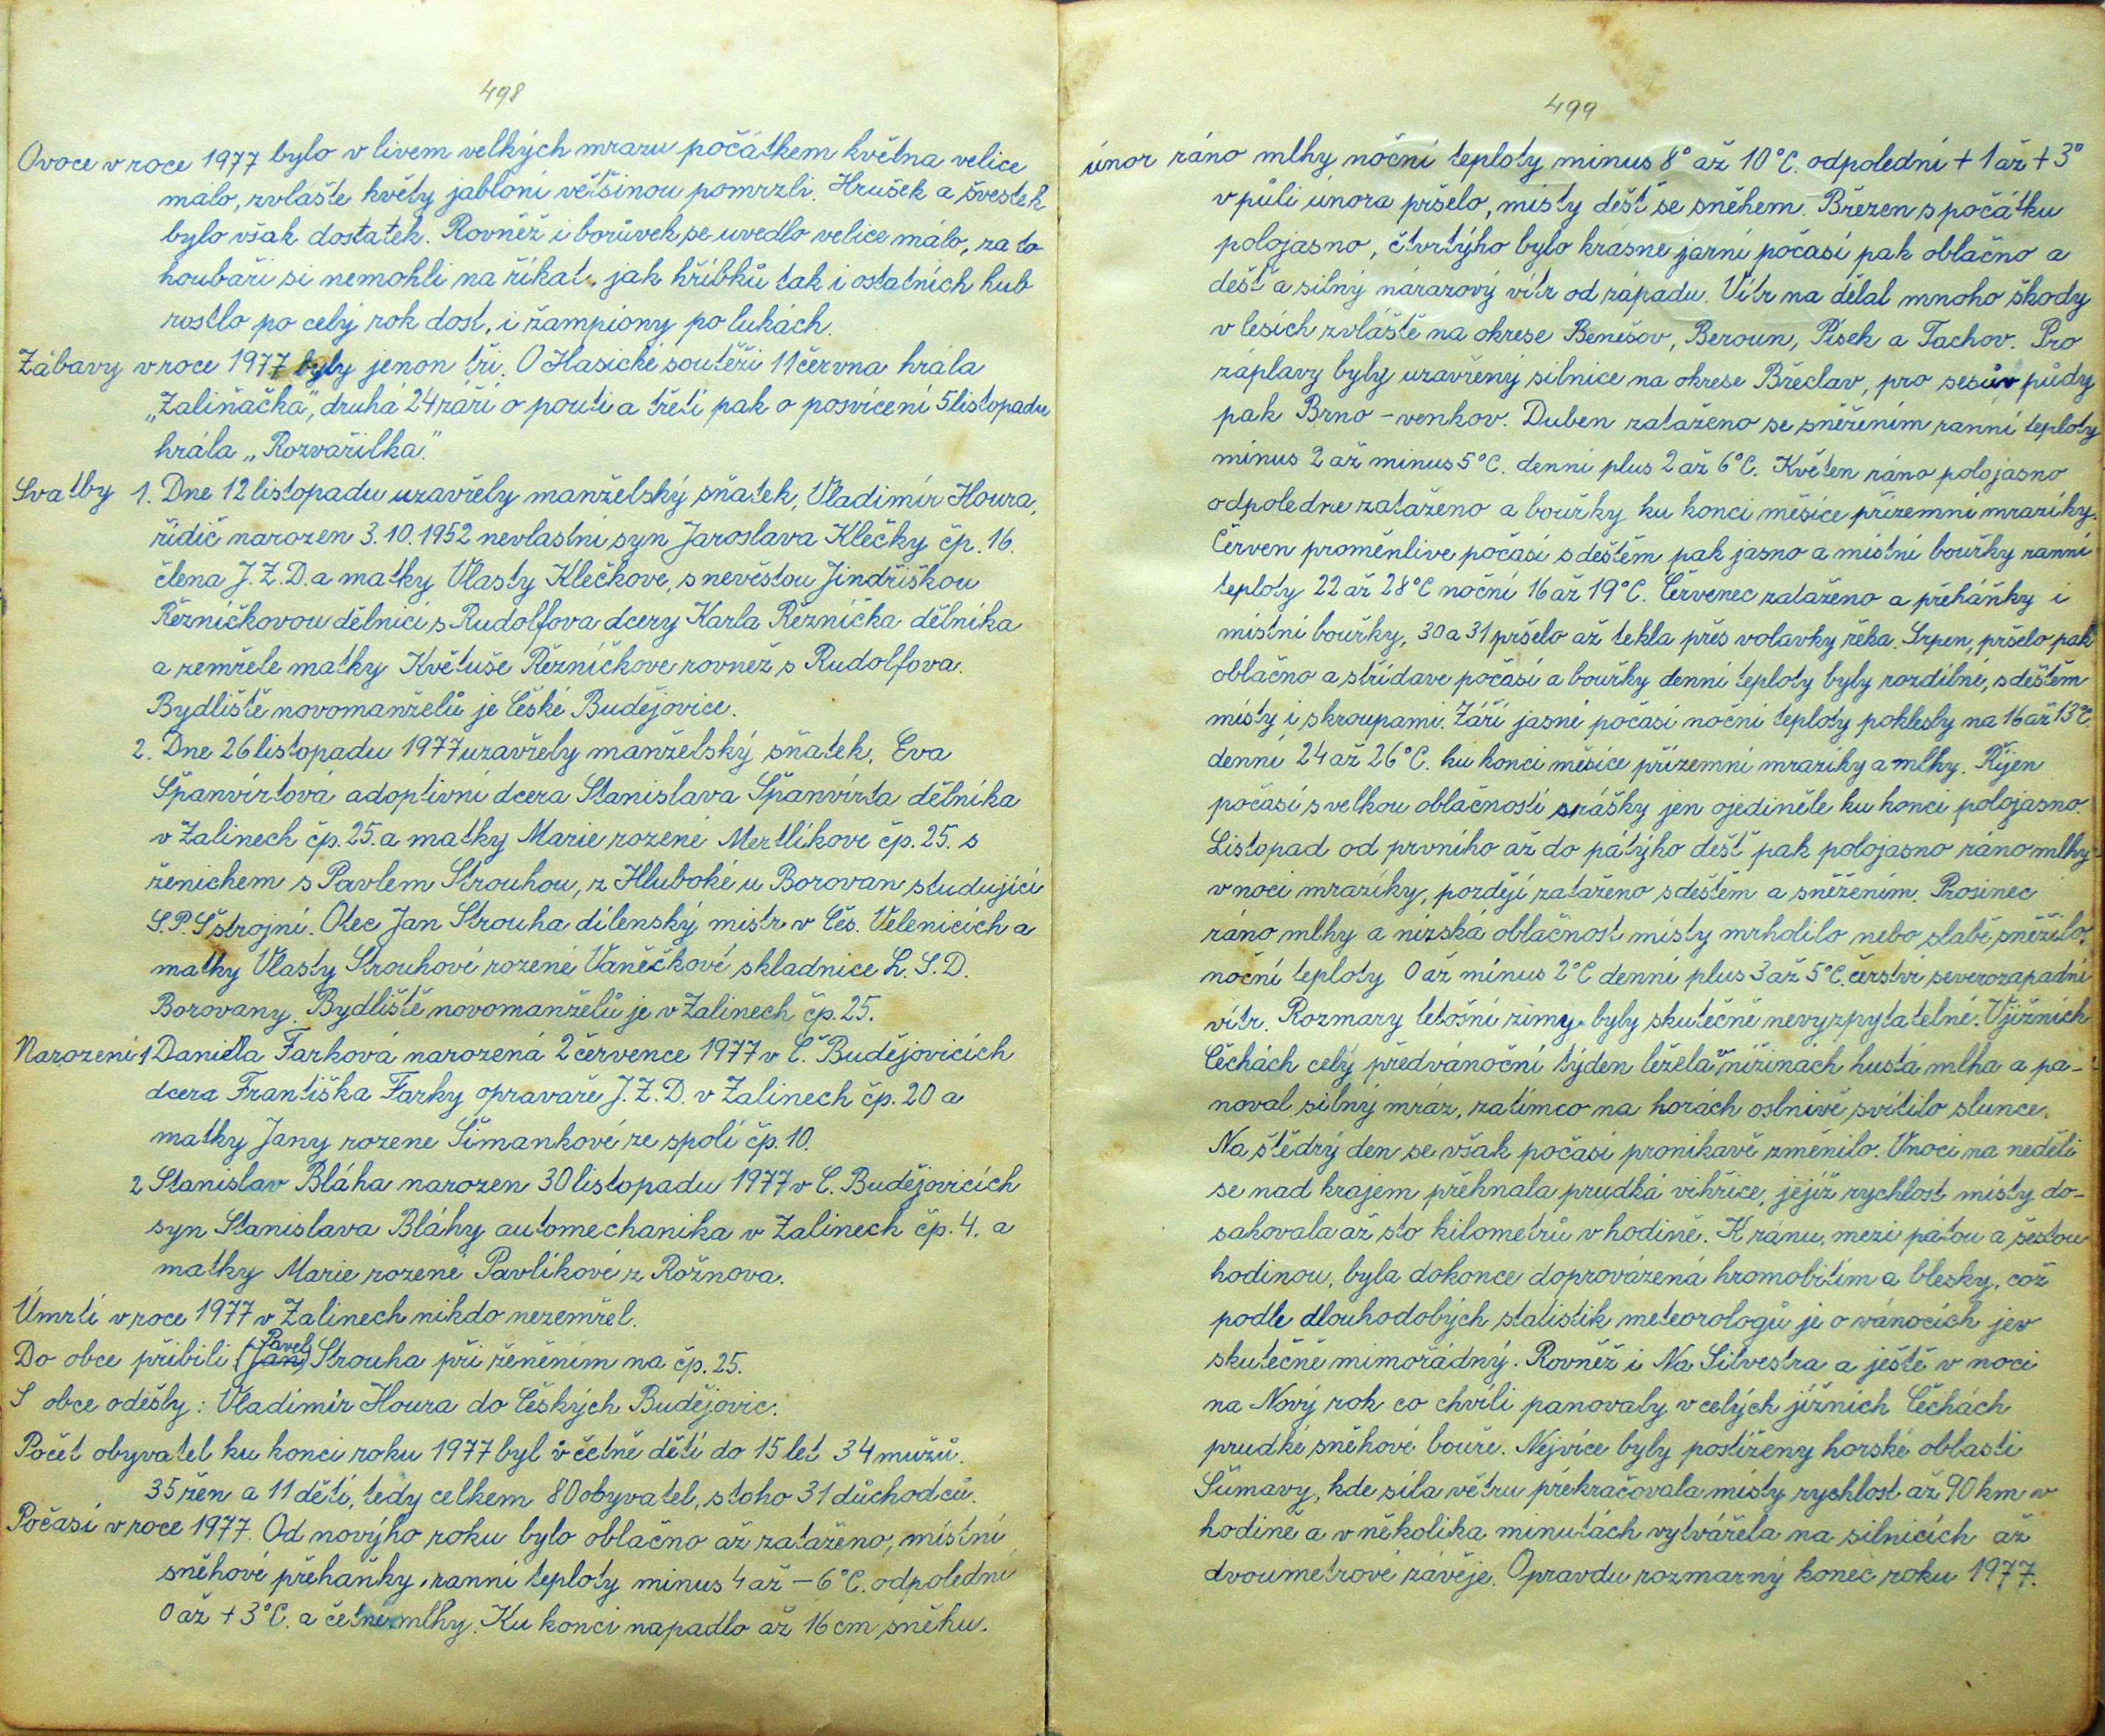 498
Ovoce v roce 1977 bylo v livem velkých mrazu počátkem května velice
málo, zvlaště květy jabloní většinou pomrzli. Hrušek a švestek
bylo však dostatek. Rovněž i borůvek se uvedlo velice málo, za to
houbaři si nemohli na říkat, jak hříbků tak i ostatních hub
rostlo po celý rok dost, i žampiony po lukách.
Zábavy v roce 1977 byly jenon tři. O Hasické soutěži 11 června hrála
„Žaliňačka", druhá 24 září o pouti a třetí pak o posvícení 5 listopadu
hrála „Rozvařilka".
Svatby 1. Dne 12 listopadu uzavřely manželský sňatek, Vladimír Houra,
řidič narozen 3.10.1952 nevlastní syn Jaroslava Klečky čp. 16.
člena J.Z.D. a matky Vlasty Klečkove, s nevěstou Jindřiškou
Řězníčkovou dělnicí s Rudolfova dcery Karla Řězníčka dělníka
a zemřele matky Květuše Řězníčkove rovnež s Rudolfova.
Bydliště novomanželů je České Budějovice.
2. Dne 26 listopadu 1977 uzavřely manželský sňatek, Eva
Španvirtová adoptivní dcera Stanislava Španvirta dělníka
v Žalinech čp. 25. a matky Marie rozené Mertlíkove čp. 25. s
ženichem s Pavlem Strouhou, z Hluboké u Borovan studující
S.P.Š strojní. Otec Jan Strouha dílenský mistr v Čes. Velenicích a
matky Vlasty Strouhové rozené Vaněčkové skladnice L.S.D.
Borovany. Bydliště novomanželů je v Žalinech čp. 25.
Narození 1 Daniella Farková narozená 2 července 1977 v Č. Budějovicích
dcera Františka Farky opravaře J.Z.D. v Žalinech čp. 20 a
matky Jany rozene Šimankové ze spolí čp. 10.
2 Stanislav Bláha narozen 30 listopadu 1977 v Č. Budějovicích
syn Stanislava Bláhy automechanika v Žalinech čp. 4. a
matky Marie rozené Pavlíkové z Rožnova.
Úmrtí v roce 1977 v Žalinech nikdo nezemřel.
Pavel
Do obce přibili (Jan) Strouha při ženěním na čp. 25.
S obce odešly: Vladimír Houra do Českých Budějovic.
Počet obyvatel ku konci roku 1977 byl včetně dětí do 15 let 34 mužů.
35 žen a 11 dětí, tedy celkem 80 obyvatel, s toho 31 důchodců.
Počasí v roce 1977. Od novýho roku bylo oblačno až zataženo, místní
sněhové přehaňky, ranní teploty minus 4 až – 6°C. odpolední
0 až + 3°C. a četné mlhy. Ku konci napadlo až 16 cm sněhu.
499
únor ráno mlhy noční teploty minus 8° až 10°C. odpolední + 1 až + 3°
v půli února pršelo, místy déšť se sněhem. Březen s počátku
polojasno, čtvrtýho bylo krásne jarní počasí pak oblačno a
déšť a silný nárazový vítr od západu. Vítr na dělal mnoho škody
v lesích zvláště na okrese Benešov, Beroun, Písek a Tachov. Pro
záplavy byly uzavřený silnice na okrese Břeclav, pro sesův půdy
pak Brno – venkov. Duben zataženo se sněžením ranní teploty
minus 2 až minus 5°C. denní plus 2 až 6°C. Květen ráno polojasno
odpoledne zataženo a bouřky ku konci měsíce přízemní mrazíky.
Červen proměnlive počasí s deštěm pak jasno a místní bouřky ranní
teploty 22 až 28°C noční 16 až 19°C. Červenec zataženo a přeháňky i
místní bouřky, 30 a 31 pršelo až tekla přes volavky řeka. Srpen, pršelo pak
oblačno a střídave počasí a bouřky denní teploty byly rozdílné, s deštěm
místy i skroupami. Září jasné počasí noční teploty poklesly na 16 až 13°C.
denní 24 až 26°C. ku konci měsíce přízemní mrazíky a mlhy. Říjen
počasí s velkou oblačností srážky jen ojediněle ku konci polojasno.
Listopad od prvního až do pátýho déšť pak polojasno ráno mlhy
v noci mrazíky, pozdějí zataženo s deštěm a sněžením. Prosinec
ráno mlhy a nízská oblačnost místy mrholilo nebo slabě sněžilo,
noční teploty 0 až minus 2°C denní plus 3 až 5°C. čerství severozapadní
vítr. Rozmary letošní zimy byly skutečně nevyzpytatelné. V jižních
Čechách celý předvánoční týden ležela v nížinách hustá mlha a pa-
noval silný mráz, zatímco na horách oslnivě svítilo slunce.
Na štědrý den se však počasí pronikavě změnilo. V noci na neděli
se nad krajem přehnala prudká vichřice, jejíž rychlost místy do-
sahovala až sto kilometrů v hodině. K ránu, mezi pátou a šestou
hodinou, byla dokonce doprovázená hromobitím a blesky, což
podle dlouhodobých statistik meteorologů je o vánocích jev
skutečně mimořádný. Rovněž i Na Silvestra a ještě v noci
na Nový rok co chvíli panovaly v celých jížních Čechách
prudké sněhové bouře. Nejvíce byly postíženy horské oblasti
Šumavy, kde síla větru překračovala místy rychlost až 90 km v
hodině a v několika minutách vytvářela na silnicích až
dvoumetrové závěje. Opravdu rozmarný konec roku 1977.